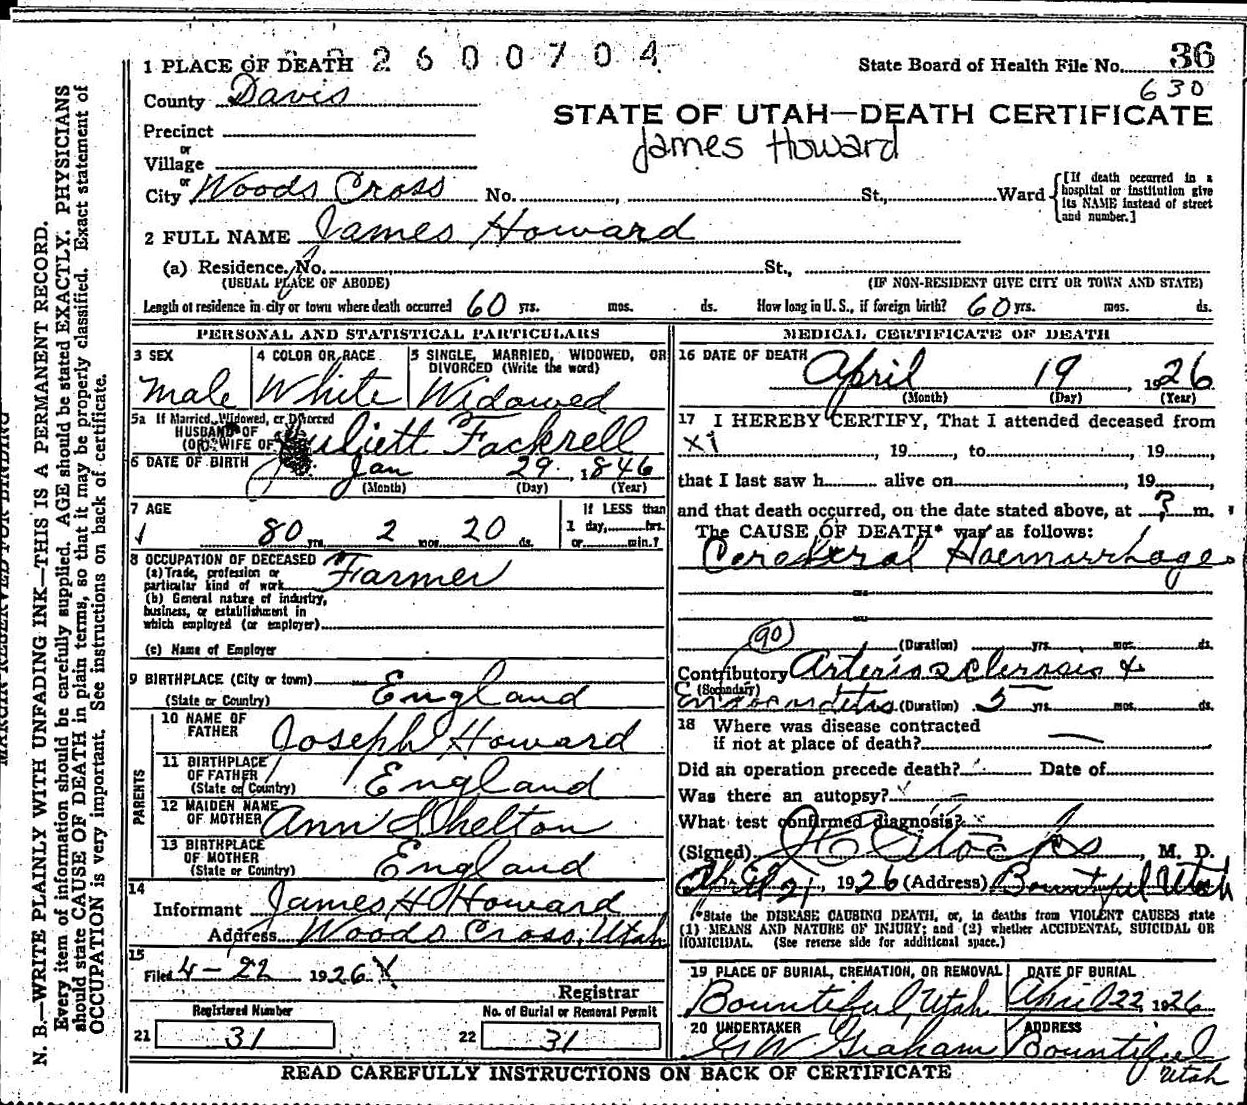 1 PLACE OF DEATH 2600704
State Board of Health File No. 36
County Davis
630
STATE OF UTAH—DEATH CERTIFICATE
Precinct
James Howard
or
Village
or
City Woods Cross No. , St., Ward
[If death occurred in a
hospital or institution give
its NAME instead of street
and number.]
2 FULL NAME James Howard
(a) Residence. No. St.,
(USUAL PLACE OF ABODE) (IF NON-RESIDENT GIVE CITY OR TOWN AND STATE)
Length of residence in city or town where death occurred 60 yrs. mos. ds. How long in U. S., if foreign birth? 60 yrs. mos. ds.
PERSONAL AND STATISTICAL PARTICULARS
3 SEX 4 COLOR OR RACE 5 SINGLE, MARRIED, WIDOWED, OR
DIVORCED (Write the word)
Male White Widowed
5a If Married, Widowed, or Divorced
HUSBAND OF
(OR) WIFE OF Juliett Fackrell
6 DATE OF BIRTH Jan 29, 1846
(Month) (Day) (Year)
7 AGE If LESS than
80 yrs. 2 mos. 20 ds. 1 day, hrs.
or min.?
8 OCCUPATION OF DECEASED
(a) Trade, profession or
particular kind of work Farmer
(b) General nature of industry,
business, or establishment in
which employed (or employer)
(c) Name of Employer
9 BIRTHPLACE (City or town)
(State or Country) England
PARENTS
10 NAME OF
FATHER Joseph Howard
11 BIRTHPLACE
OF FATHER
(State or Country) England
12 MAIDEN NAME
OF MOTHER Ann Shelton
13 BIRTHPLACE
OF MOTHER
(State or Country) England
14
Informant James H Howard
Address Woods Cross, Utah
15
Filed 4-22 1926
Registrar
Registered Number No. of Burial or Removal Permit
21 31 22 31
MEDICAL CERTIFICATE OF DEATH
16 DATE OF DEATH
April 19, 1926
(Month) (Day) (Year)
17 I HEREBY CERTIFY, That I attended deceased from
, 19 , to , 19 ,
that I last saw h alive on , 19 ,
and that death occurred, on the date stated above, at ? m.
The CAUSE OF DEATH* was as follows:
Cerebral Haemorrhage
90 (Duration) yrs. mos. ds.
Contributory Arteriosclerosis +
(Secondary)
Endocarditis (Duration) 5 yrs. mos. ds.
18 Where was disease contracted
if not at place of death?
Did an operation precede death? Date of
Was there an autopsy?
What test confirmed diagnosis?
(Signed) , M. D.
April 21, 1926 (Address) Bountiful Utah
*State the DISEASE CAUSING DEATH, or, in deaths from VIOLENT CAUSES state
(1) MEANS AND NATURE OF INJURY; and (2) whether ACCIDENTAL, SUICIDAL OR
HOMICIDAL. (See reverse side for additional space.)
19 PLACE OF BURIAL, CREMATION, OR REMOVAL DATE OF BURIAL
Bountiful, Utah April 22, 1926
20 UNDERTAKER ADDRESS
G W Graham Bountiful
Utah
READ CAREFULLY INSTRUCTIONS ON BACK OF CERTIFICATE
MARGIN RESERVED FOR BINDING
N. B.—WRITE PLAINLY WITH UNFADING INK—THIS IS A PERMANENT RECORD.
Every item of information should be carefully supplied. AGE should be stated EXACTLY. PHYSICIANS
should state CAUSE OF DEATH in plain terms, so that it may be properly classified. Exact statement of
OCCUPATION is very important. See instructions on back of certificate.